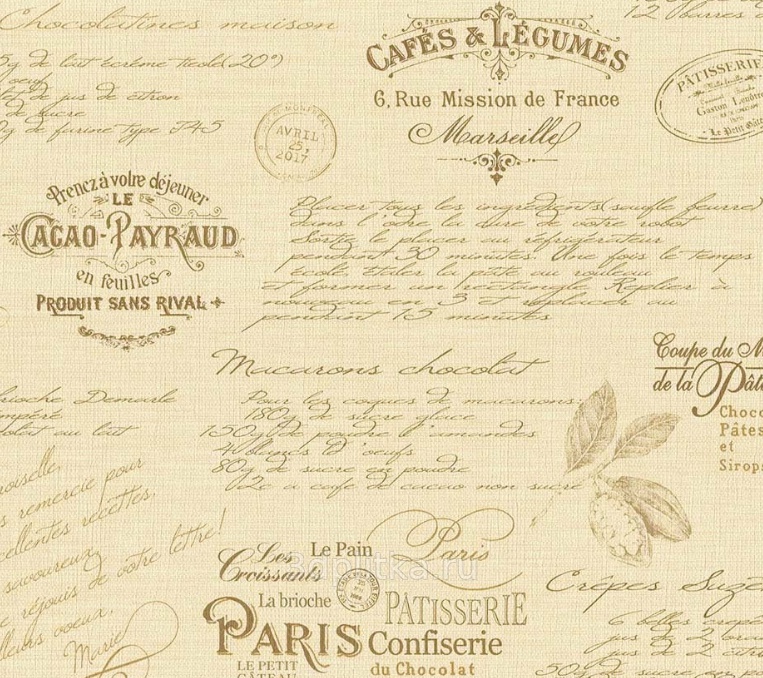 Chocolatines maison
12
5g de lait écrème tiède(20°)
oeuf
de jus de citron
de sucre
0g de farine type T45
CAFÉS & LÉGUMES
6, Rue Mission de France
Marseille
PÂTISSERIE
Gaston Lenôtre
Le Petit
AVRIL
25,
2017
Prenez à votre déjeuner
LE
CACAO-PAYRAUD
en feuilles
PRODUIT SANS RIVAL
Placer tous les ingrédients(soufle feurre)
dans l'odre la dure de votre robot
Sortez le placer au réfrigérateur
pendant 30 minutes. Une fois le temps
écolé étaler la pâte au rouleau
et former un rectangle. Replier à
nouveau en 3 et replacer au
pendant 15 minutes
Coupe du M
de la Pât
Choco
Pâtes
et
Sirops
Macarons chocolat
Pour les coques de macarons:
180g de sucre glace
150g de poudre d'amandes
4 blancs d'oeufs
80g de sucre en poudre
1/2c a café de cacao non sucré
rioche Demarle
mpéré
olat au lait
moiselle,
s remercie pour
cellentes recettes,
savoureux,
e réjouis de votre lettre!
lleurs voeux,
Marie
Les
Croissants
Le Pain
Paris
La brioche
PÂTISSERIE
PARIS
Confiserie
LE PETIT
GÂTEAU
du Chocolat
Zaputka.ru
Crêpes Suze
6 belles crêpe
jus de 2 oran
jus de 2 citr
50g de sucre en po